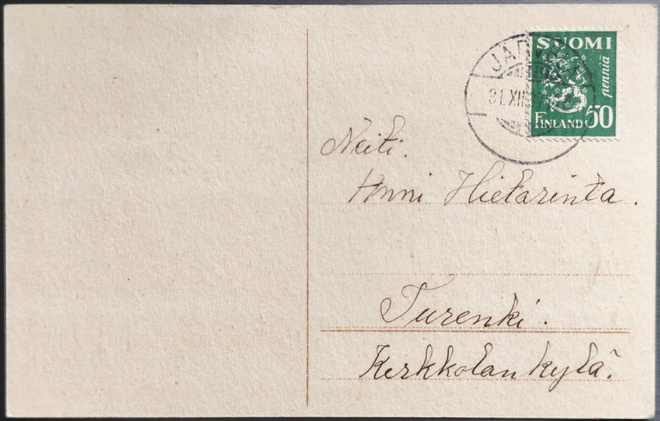 SUOMI
penniä
FINLAND 50
31.XII
Neiti.
Anni Hietarinta.
Turenki.
Kerkkolankylä.